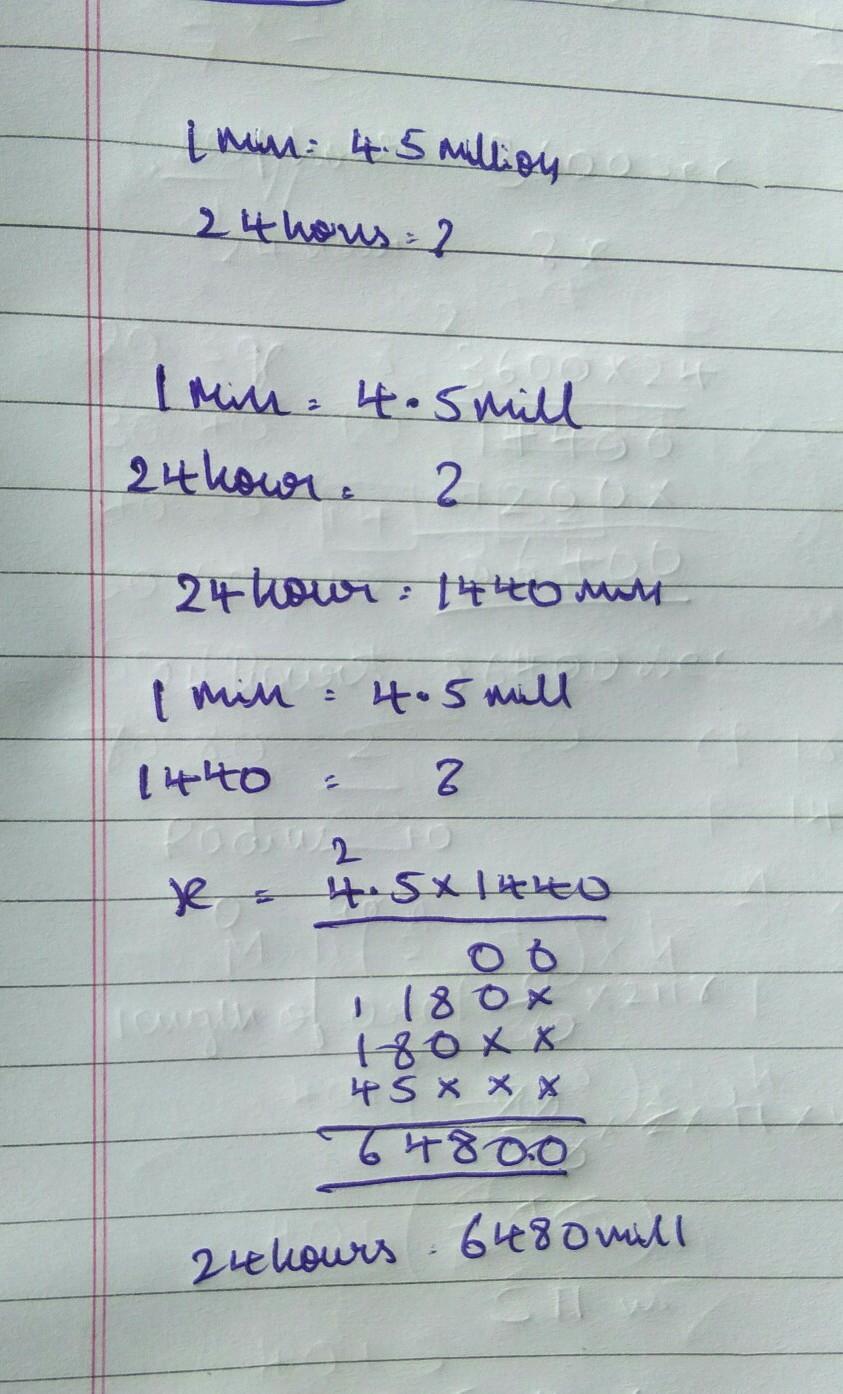 1 min = 4.5 million
24 hours = ?
1 min = 4.5 mill
24 hour = ?
24 hour = 1440 min
1 min = 4.5 mill
1440 = ?
2
x = 4.5 x 1440
0 0
1 1 8 0 x
1 8 0 x x
4 5 x x x
6 4 8 0 . 0
24 hours = 6480 mill